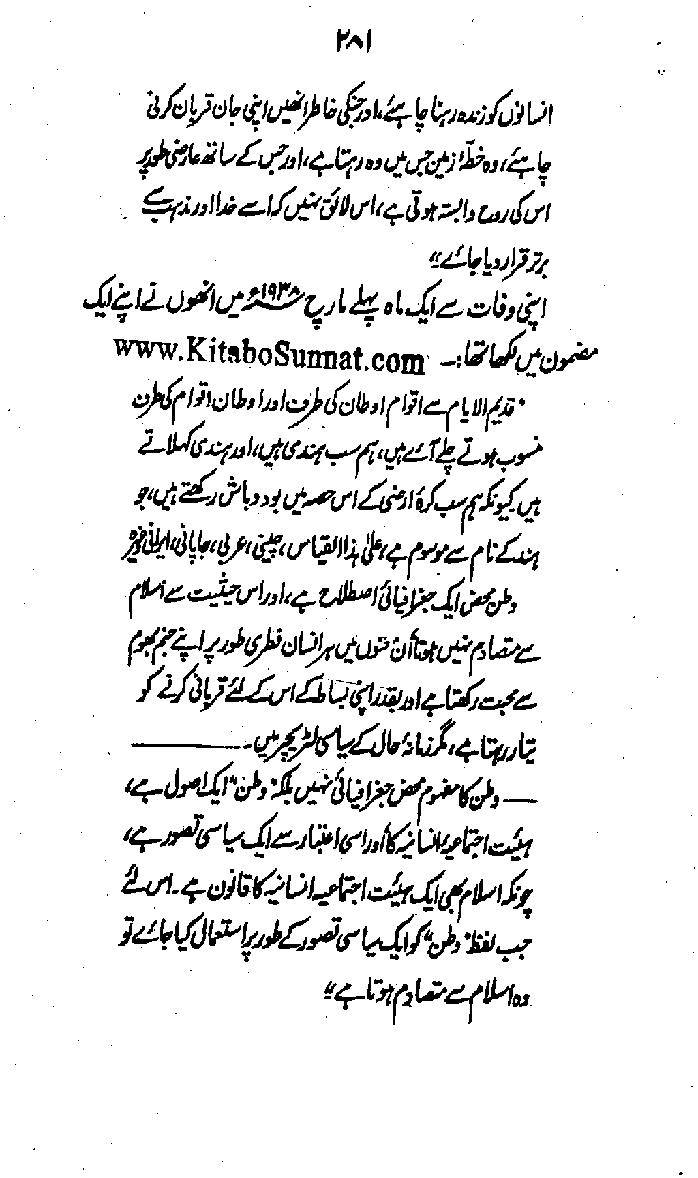 ۲۸۱
انسانوں کو زندہ رہنا چاہئے، اور جنکی خاطر انھیں اپنی جان قربان کرنی
چاہئے، وہ خطۂ زمین جس میں وہ رہتا ہے، اور جس کے ساتھ عارضی طور پر
اس کی روح وابستہ ہوتی ہے، اس لائق نہیں کہ اسے خدا اور مذہب سے
برتر قرار دیا جائے“
اپنی وفات سے ایک ماہ پہلے مارچ ۱۹۳۸ء میں انھوں نے اپنے ایک
مضمون میں لکھا تھا:۔ www.KitaboSunnat.com
”قدیم الایام سے اقوام اوطان کی طرف اور اوطان اقوام کی طرف
منسوب ہوتے چلے آئے ہیں، ہم سب ہندی ہیں، اور ہندی کہلاتے
ہیں کیونکہ ہم سب کرۂ ارضی کے اس حصہ میں بود و باش رکھتے ہیں، جو
ہند کے نام سے موسوم ہے، علیٰ ہذا القیاس، چینی، عربی، جاپانی، ایرانی وغیرہ
وطن محض ایک جغرافیائی اصطلاح ہے، اور اس حیثیت سے اسلام
سے متصادم نہیں ہوتا، ان معنوں میں ہر انسان فطری طور پر اپنے جنم بھوم
سے محبت رکھتا ہے اور بقدر اپنی بساط کے اس کے لئے قربانی کرنے کو
تیار رہتا ہے، مگر زمانۂ حال کے سیاسی لٹریچر میں۔ ————
— وطن کا مفہوم محض جغرافیائی نہیں بلکہ ”وطن“ ایک اصول ہے،
ہیئت اجتماعیہ انسانیہ کا، اور اسی اعتبار سے ایک سیاسی تصور ہے،
چونکہ اسلام بھی ایک ہیئت اجتماعیہ انسانیہ کا قانون ہے۔ اس لئے
جب لفظ ”وطن“ کو ایک سیاسی تصور کے طور پر استعمال کیا جائے تو
وہ اسلام سے متصادم ہوتا ہے“